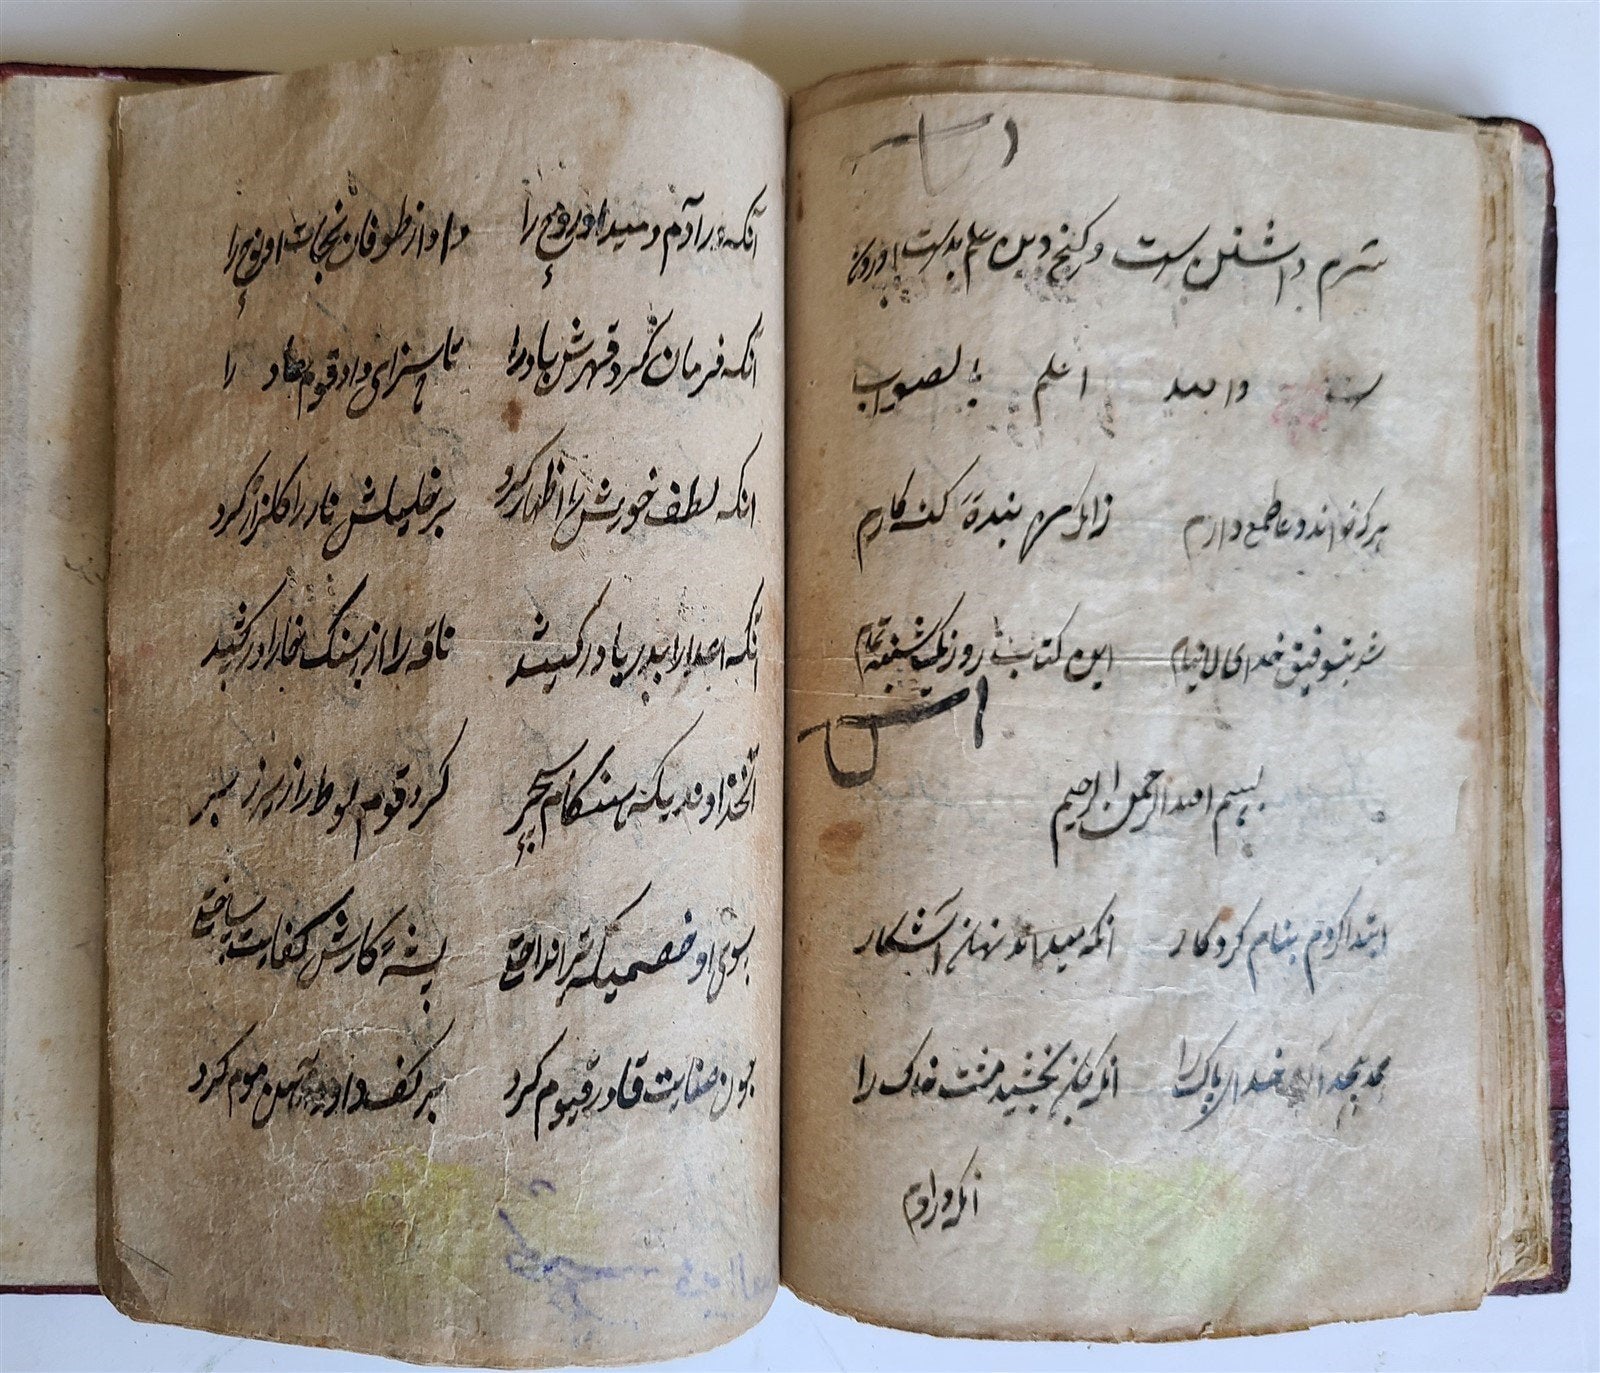 شرم داشتن است و گنج دین علم بدست اوردن
است والله اعلم بالصواب
هر که خواند دعا طمع دارم زانکه من بنده گنه کارم
شد بتوفیق خدای لاینام این کتاب روز یکشنبه تمام
بسم الله الرحمن الرحیم
ابتدا کردم بنام کردکار انکه میداند نهان اشکار
حمد بیحد آن خدای پاک را انکه ایمان بخشید مشت خاک را
انکه در ادم
آنکه در آدم دمید او روح را داد از طوفان نجات او نوح را
آنکه فرمان کرد قهرش باد را تا سزای داد قوم عاد را
انکه لطف خویش را اظهار کرد بر خلیلش نار را کلزار کرد
آنکه اعدا را بدریا در کشید ناقه را از سنک خارا در کشید
آن خداوندیکه هنکام سحر کرد قوم لوط را زیر زبر
سوی او خصمیکه تیر انداخته پشه کارش کفایت ساخته
چون عنایت قادر قیوم کرد بر کف داود آهن موم کرد